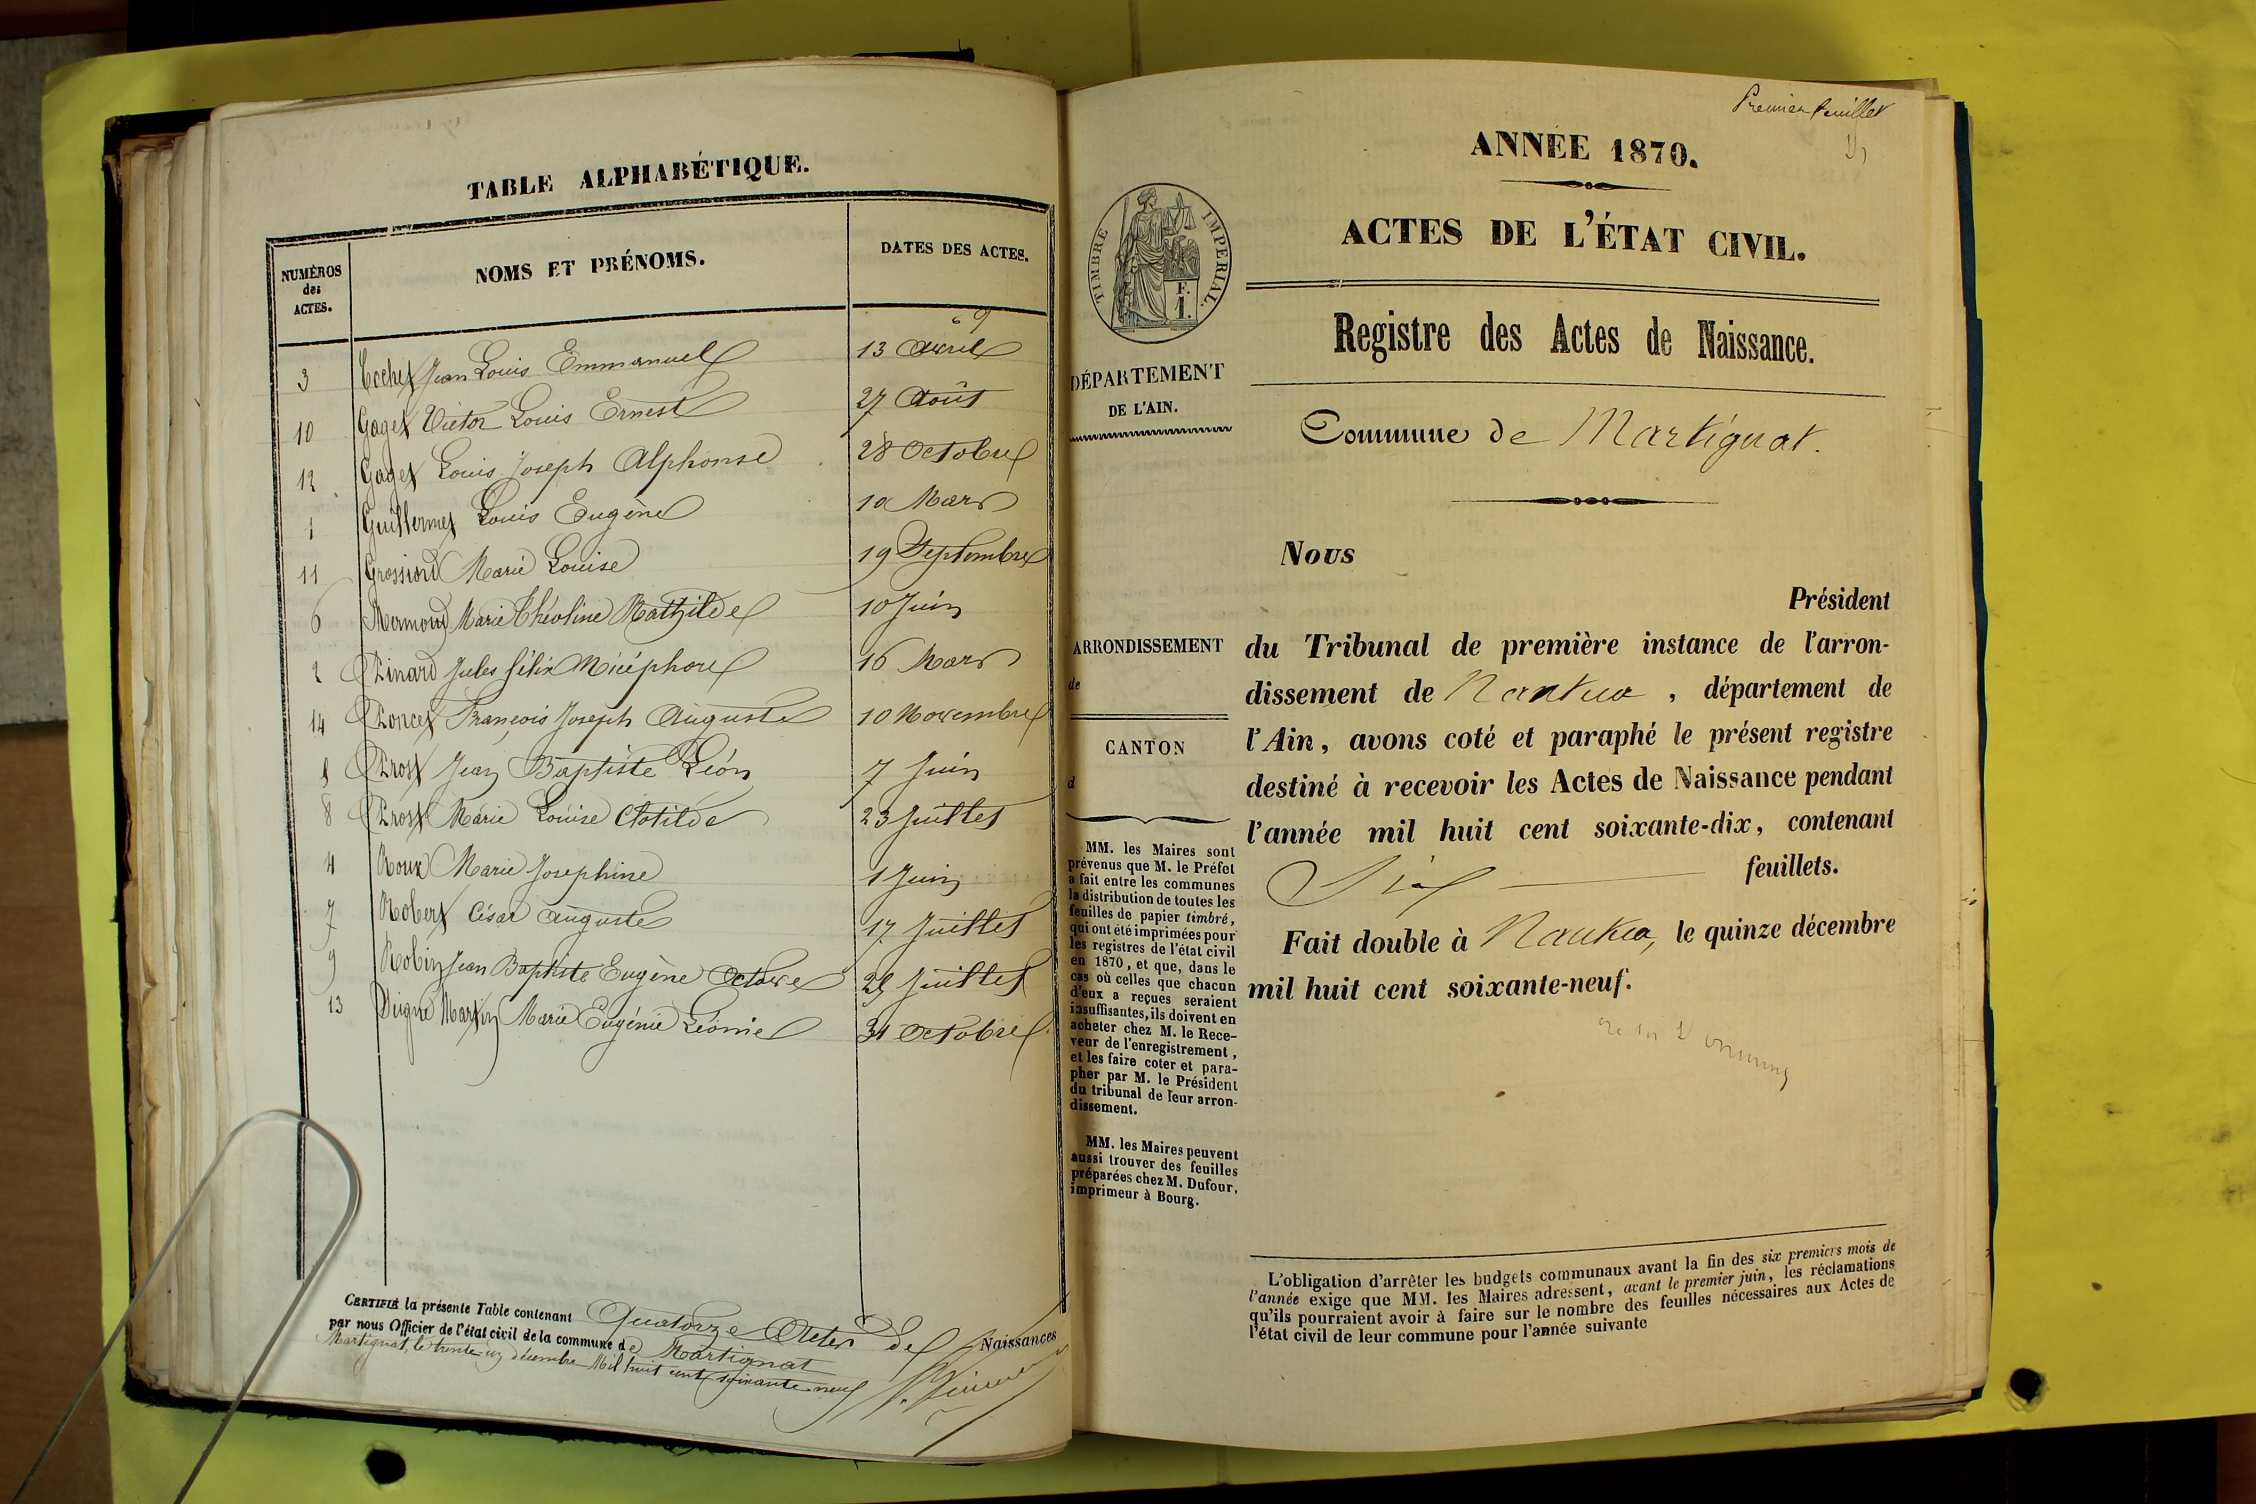 TABLE ALPHABÉTIQUE.
NUMÉROS
des
ACTES.
NOMS ET PRÉNOMS.
DATES DES ACTES.
69
3 Cochet Jean Louis Emmanuel 13 Avril
10 Gaget Victor Louis Ernest 27 Août
12 Gaget Louis Joseph Alphonse 28 Octobre
1 Guillermet Louis Eugène 10 Mars
11 Grossiord Marie Louise 19 Septembre
6 Mermond Marie Théoline Mathilde 10 Juin
2 Pinard Jules félix Nicéphore 16 Mars
14 Poncet François Joseph Auguste 10 Novembre
5 Prost Jean Baptiste Léon 7 Juin
8 Prost Marie Louise Clotilde 23 Juillet
4 Roux Marie Josephine 1 Juin
7 Robert César Auguste 17 Juillet
9 Robin Jean Baptiste Eugène Octave Juillet
13 Martin Marie Eugénie Léonie 31 Octobre
CERTIFIÉ la présente Table contenant Quatorze Actes de Naissances
par nous Officier de l'état civil de la commune de Martignat
Martignat, le trente un décembre Mil huit cent soixante neuf
Premier feuillet
ANNÉE 1870.
ACTES DE L'ÉTAT CIVIL.
Registre des Actes de Naissance.
TIMBRE IMPERIAL.
F.
1.
DÉPARTEMENT
DE L'AIN.
Commune de Martignat.
Nous
Président
du Tribunal de première instance de l'arron-
dissement de Nantua, département de
l'Ain, avons coté et paraphé le présent registre
destiné à recevoir les Actes de Naissance pendant
l'année mil huit cent soixante-dix, contenant
Six feuillets.
Fait double à Nantua, le quinze décembre
mil huit cent soixante-neuf.
ARRONDISSEMENT
de
CANTON
d
MM. les Maires sont
prévenus que M. le Préfet
a fait entre les communes
la distribution de toutes les
feuilles de papier timbré,
qui ont été imprimées pour
les registres de l'état civil
en 1870, et que, dans le
cas où celles que chacun
d'eux a reçues seraient
insuffisantes, ils doivent en
acheter chez M. le Rece-
veur de l'enregistrement,
et les faire coter et para-
pher par M. le Président
du tribunal de leur arron-
dissement.
MM. les Maires peuvent
aussi trouver des feuilles
préparées chez M. Dufour,
imprimeur à Bourg.
L'obligation d'arrêter les budgets communaux avant la fin des six premiers mois de
l'année exige que MM. les Maires adressent, avant le premier juin, les réclamations
qu'ils pourraient avoir à faire sur le nombre des feuilles nécessaires aux Actes de
l'état civil de leur commune pour l'année suivante